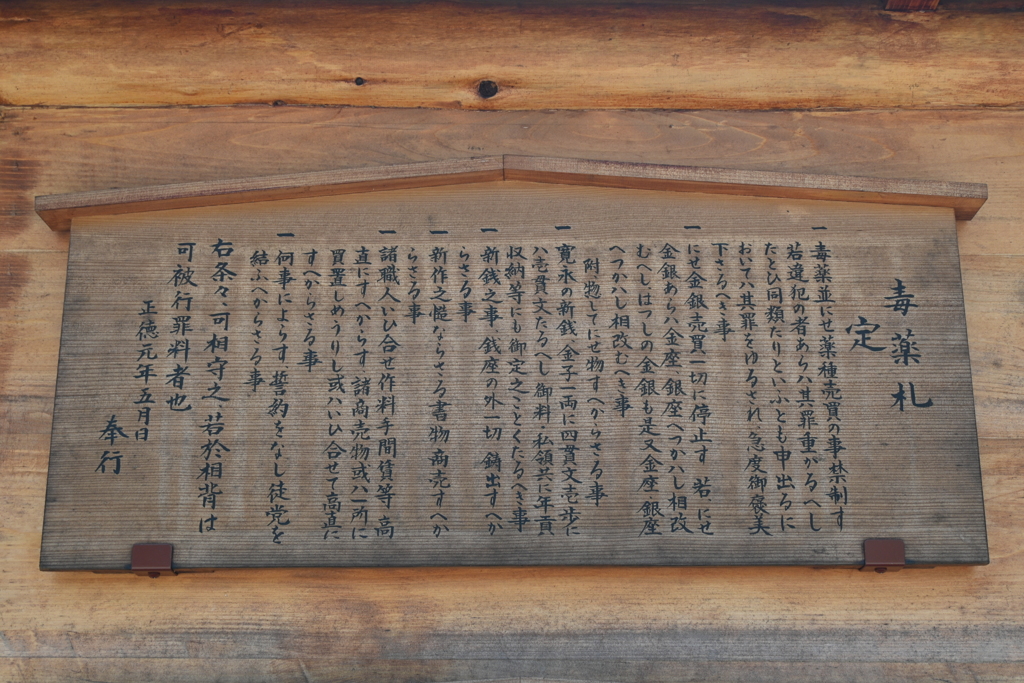 毒薬札
定
一 毒薬並にせ薬種売買の事禁制す
若違犯の者あらハ其罪重かるへし
たとひ同類たりといふとも申出るに
おいてハ其罪をゆるされ、急度御褒美
下さるへき事
一 にせ金銀売買一切に停止す 若、にせ
金銀あらハ、金座・銀座へつかハし相改
むへしはつしの金銀も是又金座・銀座
へつかハし相改むへき事
附惣してにせ物すへからさる事
一 寛永の新銭、金子一両に四貫文壱歩に
ハ壱貫文たるへし、御料・私領共に年貢
収納等にも御定之ことくたるへき事
一 新銭之事、銭座の外一切、鋳出すへか
らさる事
一 新作之慥ならさる書物商売すへか
らさる事
一 諸職人いひ合せ作料手間賃等高
直にすへからす 諸商売物或ハ一所に
買置しめうりし或ハいひ合せて高直に
すへからさる事
一 何事によらす誓約をなし徒党を
結ふへからさる事
右条々、可相守之、若於相背は
可被行罪料者也
正徳元年五月日
奉行